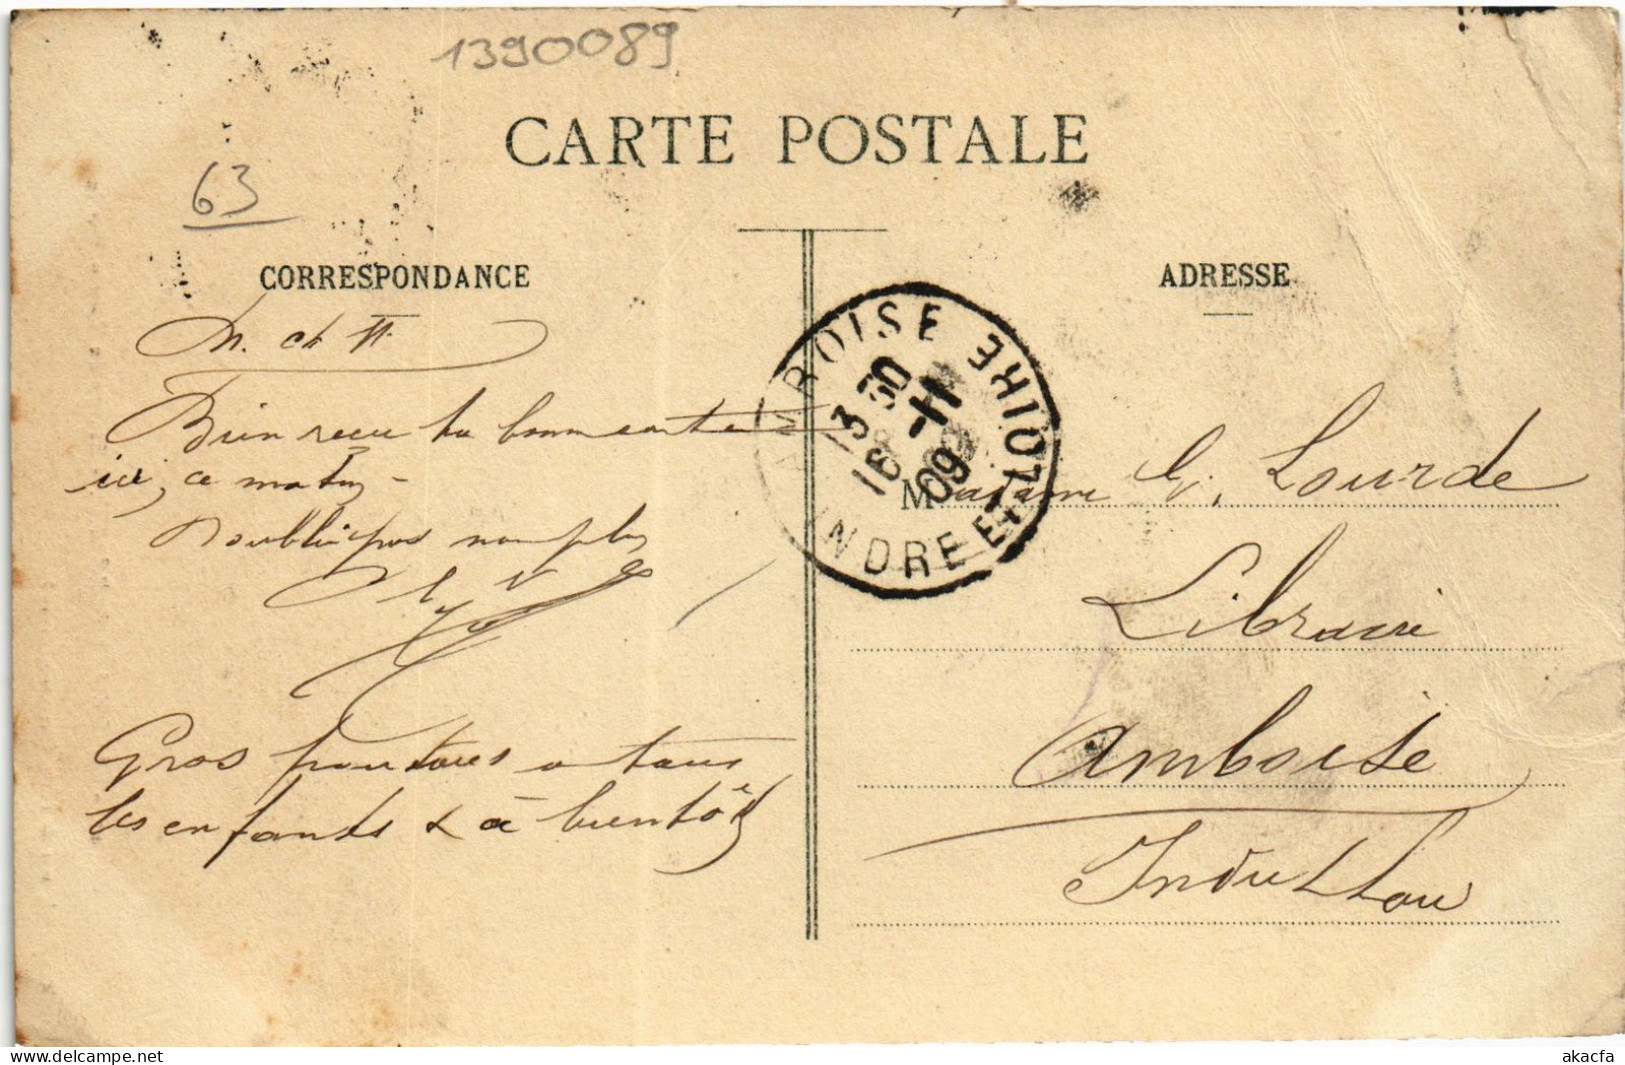 1390089
CARTE POSTALE
63
CORRESPONDANCE
ADRESSE
M. ch H.
Bien reçu ta bonne carte
ici, ce matin -
N'oublie pas non plus
Gros pour tous
les enfants & à bientôt
AMBOISE
13 30
16 -11
09
INDRE ET LOIRE
Madame G. Lourde
Libraire
Amboise
Indre et Loire
delcampe.net
akacfa